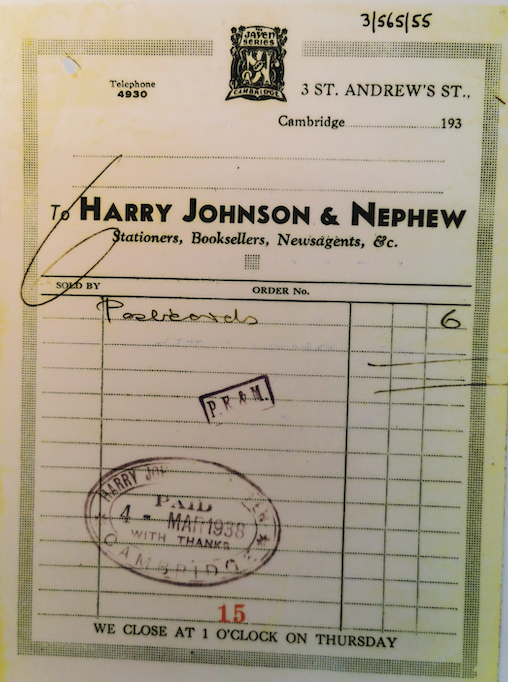 3/565/55
THE
JAVEN
SERIES
CAMBRIDGE
Telephone
4930
3 ST. ANDREW'S ST.,
Cambridge 193
To HARRY JOHNSON & NEPHEW
Stationers, Booksellers, Newsagents, &c.
SOLD BY ORDER No.
Postcards 6
HARRY JOH
PAID
4 - MAR 1938
WITH THANKS
15
WE CLOSE AT 1 O'CLOCK ON THURSDAY